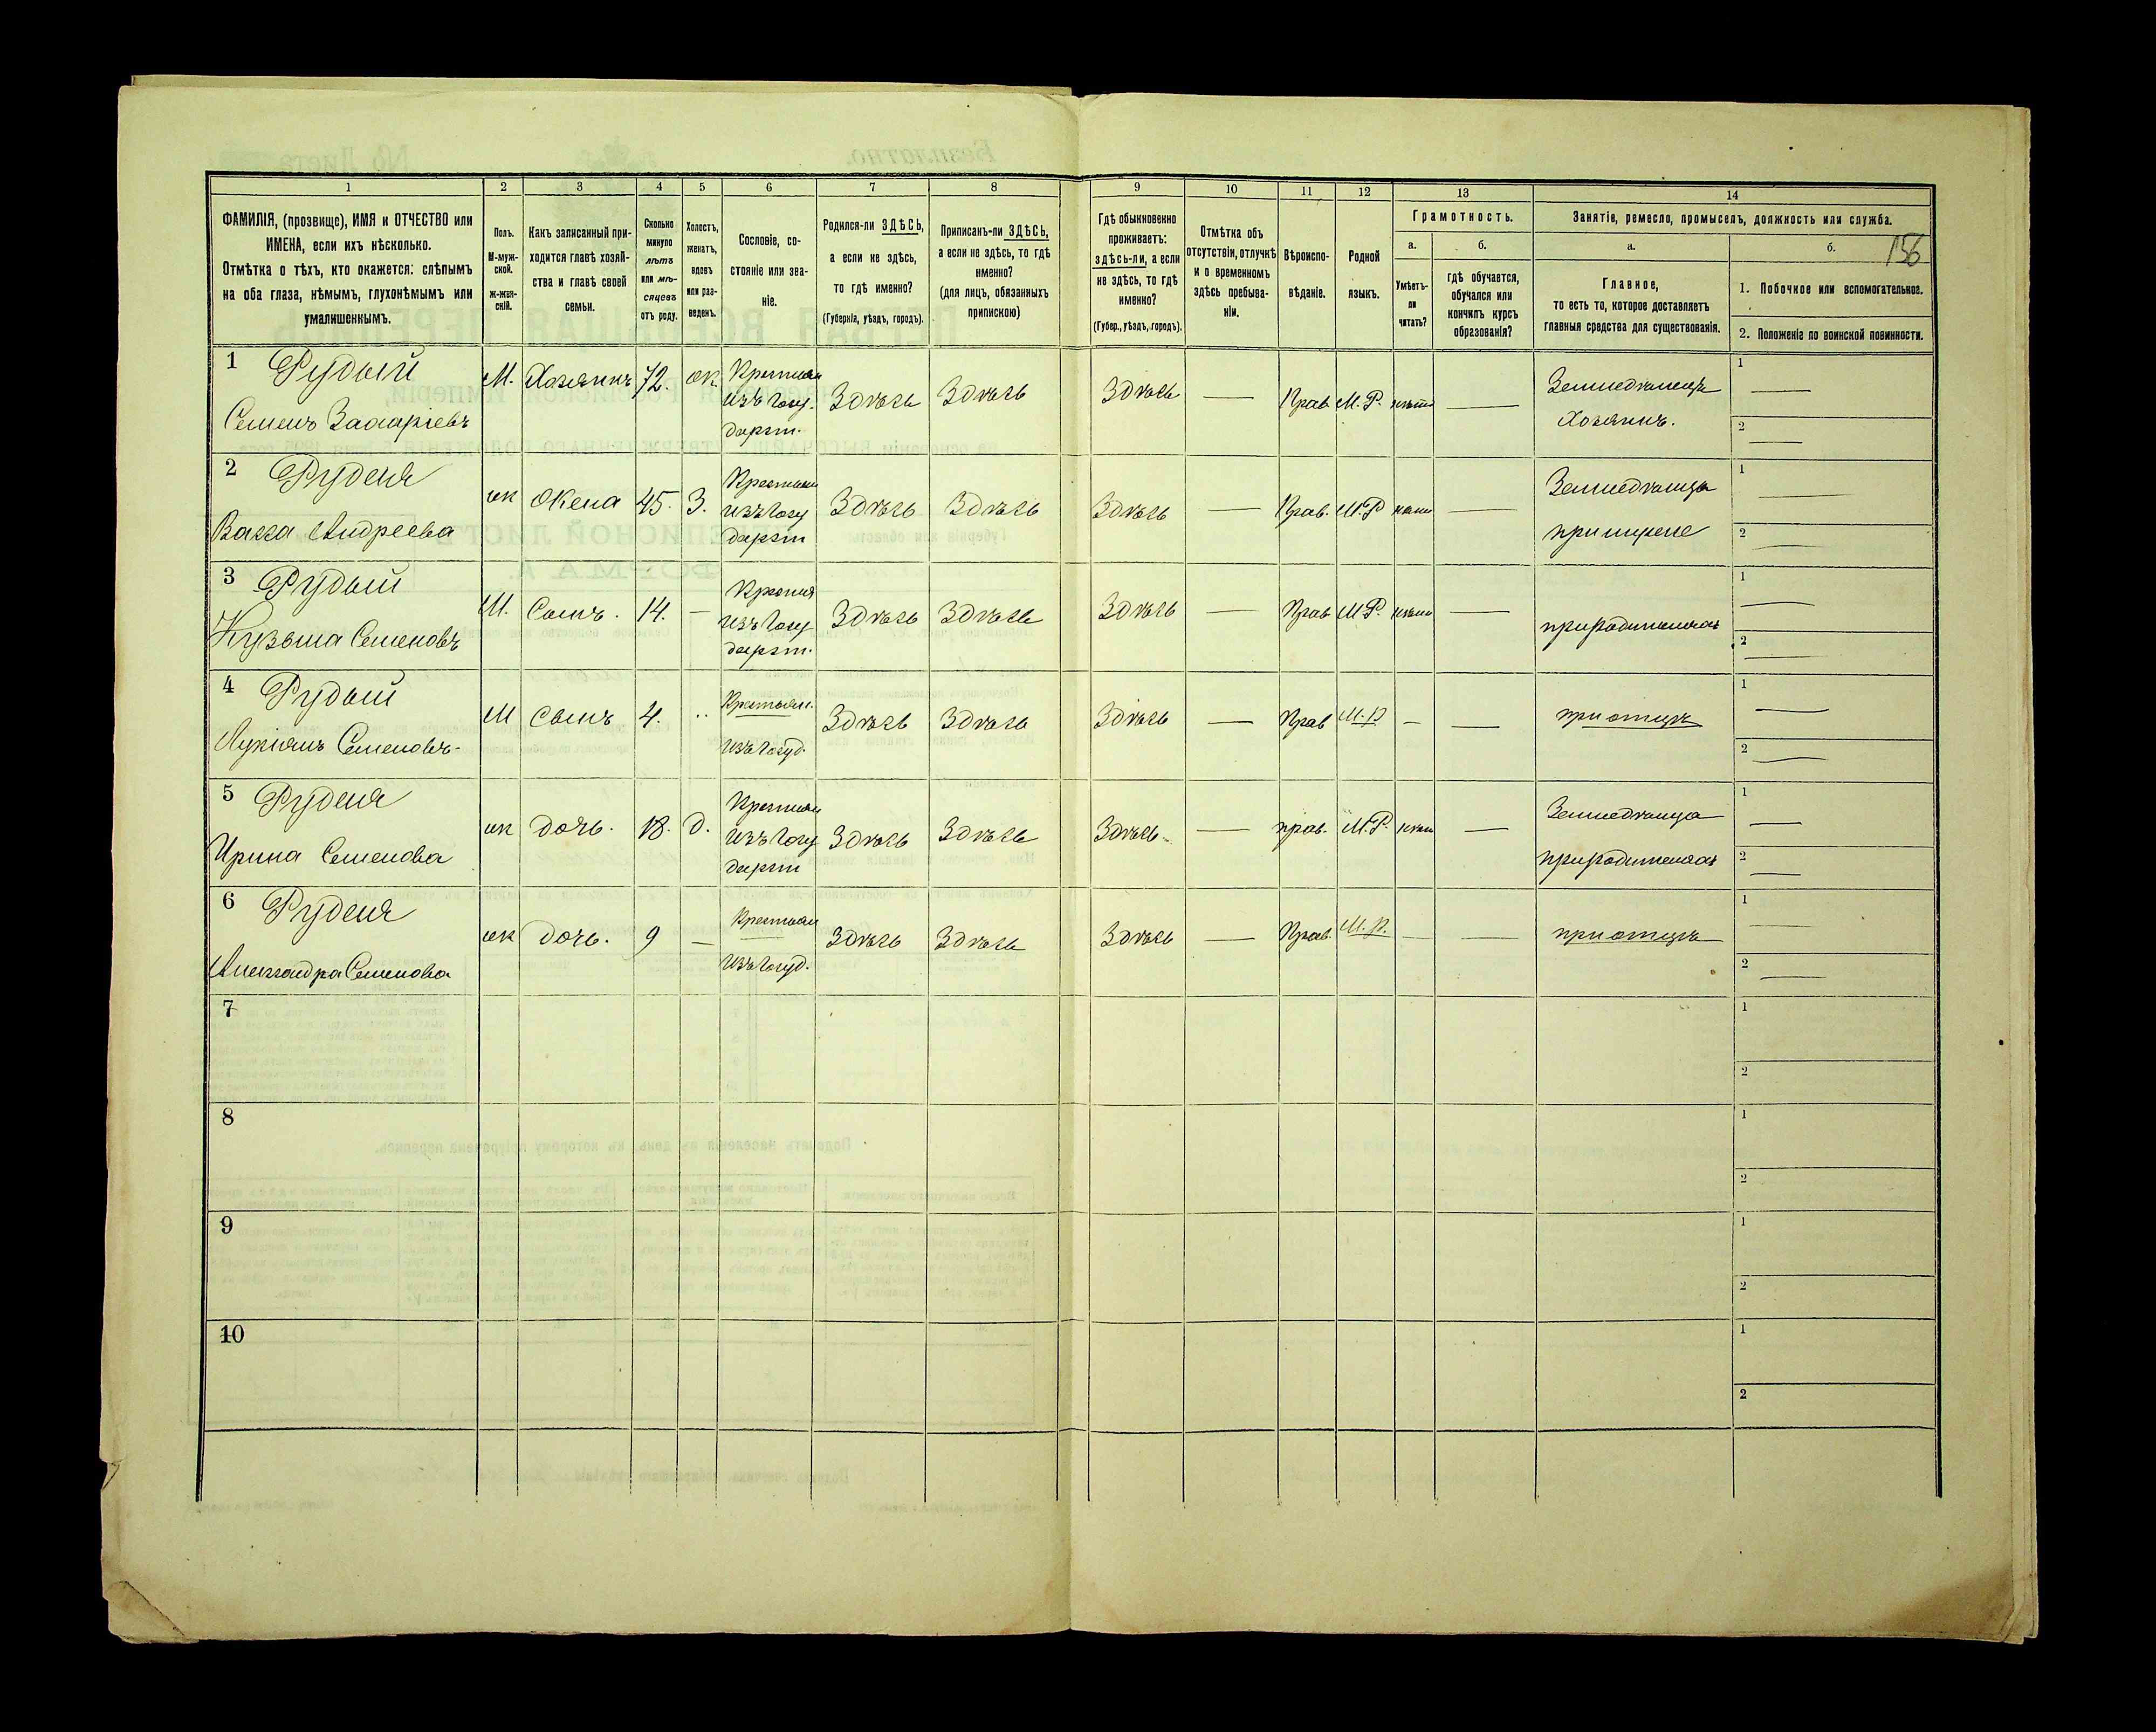 1 2 3 4 5 6 7 8 9 10 11 12 13 14
ФАМИЛІЯ, (прозвище), ИМЯ и ОТЧЕСТВО или
ИМЕНА, если ихъ нѣсколько.
Отмѣтка о тѣхъ, кто окажется: слѣпымъ
на оба глаза, нѣмымъ, глухонѣмымъ или
умалишеннымъ.
Полъ.
М-муж-
ской.
ж-жен-
скій.
Какъ записанный при-
ходится главѣ хозяй-
ства и главѣ своей
семьи.
Сколько
минуло
лѣтъ
или мѣ-
сяцевъ
отъ роду.
Холостъ,
женатъ,
вдовъ
или раз-
веденъ.
Сословіе, со-
стояніе или зва-
ніе.
Родился-ли ЗДѢСЬ,
а если не здѣсь,
то гдѣ именно?
(Губернія, уѣздъ, городъ).
Приписанъ-ли ЗДѢСЬ,
а если не здѣсь, то гдѣ
именно?
(для лицъ, обязанныхъ
припискою)
Гдѣ обыкновенно
проживаетъ:
здѣсь-ли, а если
не здѣсь, то гдѣ
именно?
(Губер., уѣздъ, городъ).
Отмѣтка объ
отсутствіи, отлучкѣ
и о временномъ
здѣсь пребыва-
ніи.
Вѣроиспо-
вѣданіе.
Родной
языкъ.
Грамотность.
а.
Умѣетъ-
ли
читать?
б.
гдѣ обучается,
обучался или
кончилъ курсъ
образованія?
Занятіе, ремесло, промыселъ, должность или служба.
а.
Главное,
то есть то, которое доставляетъ
главныя средства для существованія.
б.
156
1. Побочное или вспомогательное.
2. Положеніе по воинской повинности.
1 Рудый
Семенъ Захаріевъ
М. Хозяинъ 72. ж.
Крестьян
изъ Госу.
дарст.
Здѣсь Здѣсь Здѣсь — Прав М.Р. нѣтъ —
Земледѣлецъ
Хозяинъ.
1 —
2 —
2 Рудая
Васса Андреева
ж Жена 45. З.
Крестьян
изъ Госу
дарст
Здѣсь Здѣсь Здѣсь — Прав. М.Р нѣтъ —
Земледѣлица
при мужѣ
1 —
2 —
3 Рудый
Кузьма Семеновъ
М. Сынъ. 14. —
Крестья
изъ Госу
дарст.
Здѣсь Здѣсь Здѣсь — Прав М.Р. нѣтъ —
при родителяхъ
1 —
2 —
4 Рудый
Лукіянъ Семеновъ.
М Сынъ 4. "
Крестьян.
изъ Госуд.
Здѣсь Здѣсь Здѣсь — Прав М.Р — —
при отцѣ
1 —
2 —
5 Рудая
Ирина Семенова
ж дочь. 18. д.
Крестьян
изъ Госу
дарст
Здѣсь Здѣсь Здѣсь — прав. М.Р. нѣтъ —
Земледѣлица
при родителяхъ
1 —
2 —
6 Рудая
Александра Семенова
ж дочь. 9 —
Крестьян
изъ Госуд.
Здѣсь Здѣсь Здѣсь — Прав. М.Р. — —
при отцѣ
1 —
2 —
7
1
2
8
1
2
9
1
2
10
1
2